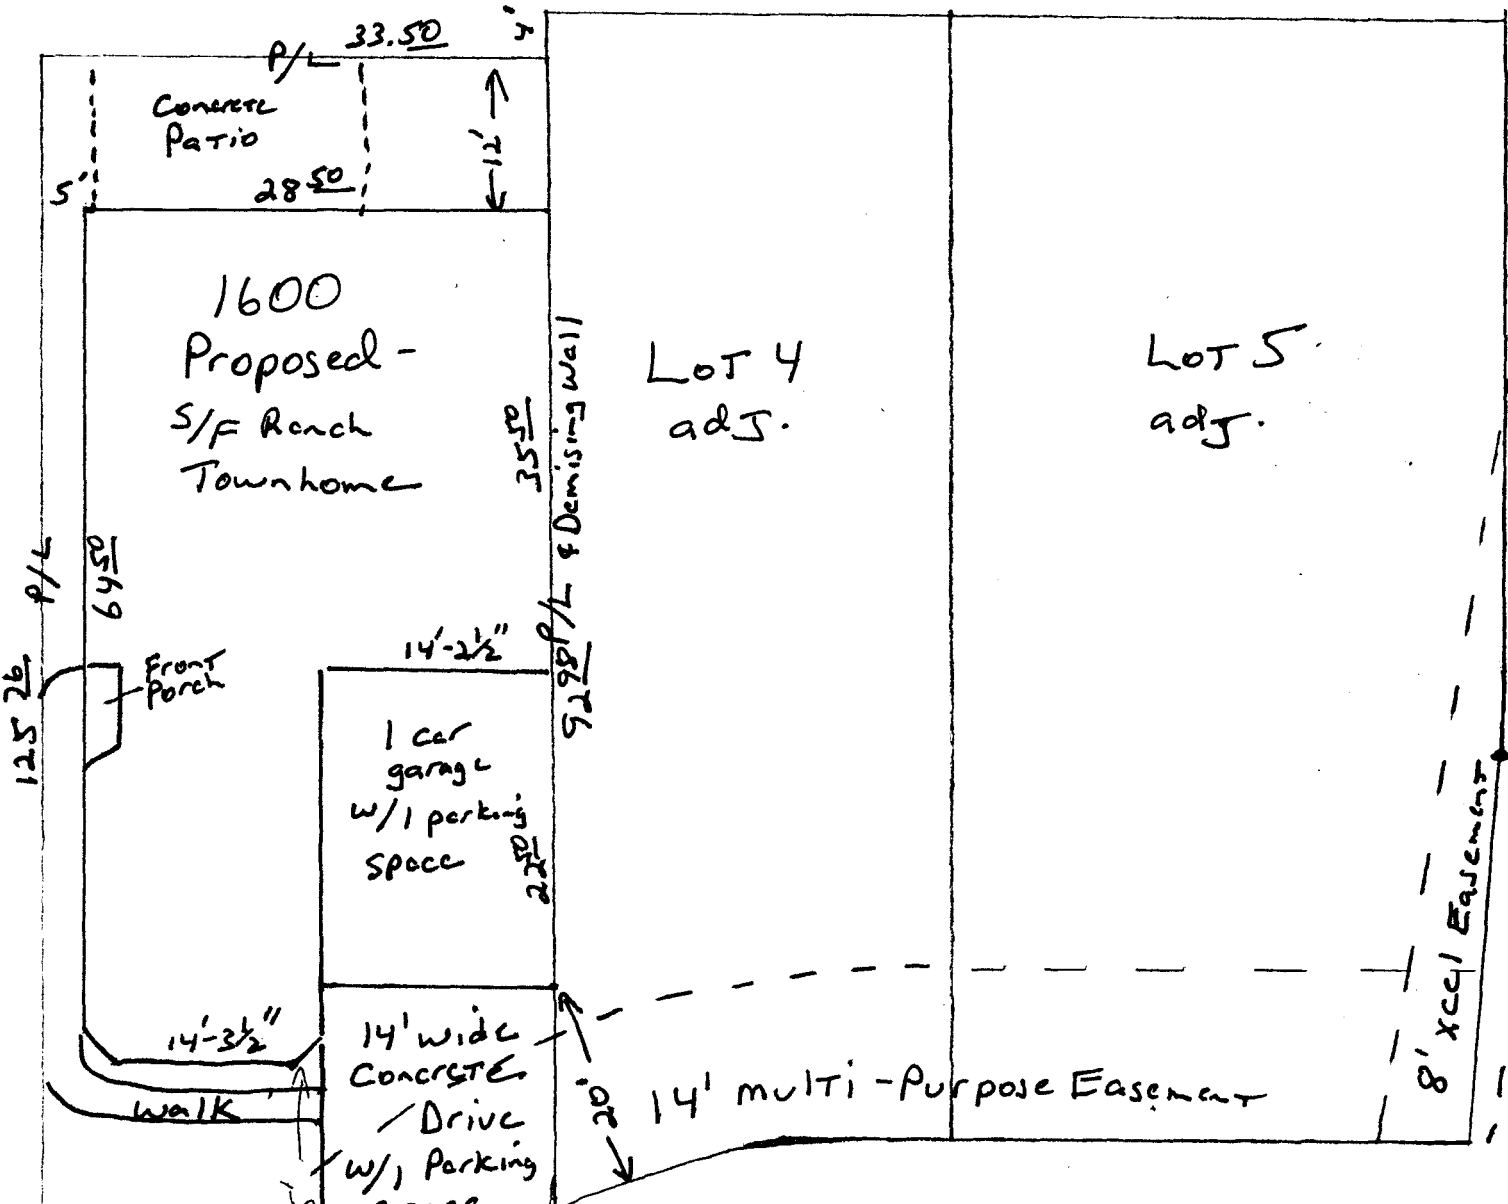 33.50
4'
P/L
Concrete
Patio
12'
5'
28 50
1600
Proposed -
S/F Ranch
Townhome
35 50
P/L & Demising Wall
LOT 4
adj.
LOT 5
adj.
P/L
64 50
14'-2½"
92 98
Front
Porch
125 26
1 car
garage
w/1 parking
space
22 50
8' xccl Easement
14'-3½"
14' wide
Concrete
Drive
w/1 Parking
walk
20'
14' multi-Purpose Easement